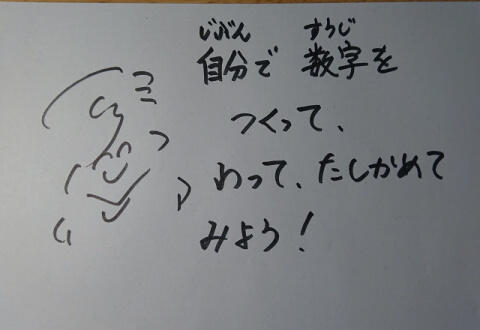 じぶん すうじ
自分で 数字を
つくって、
わって、たしかめて
みよう!